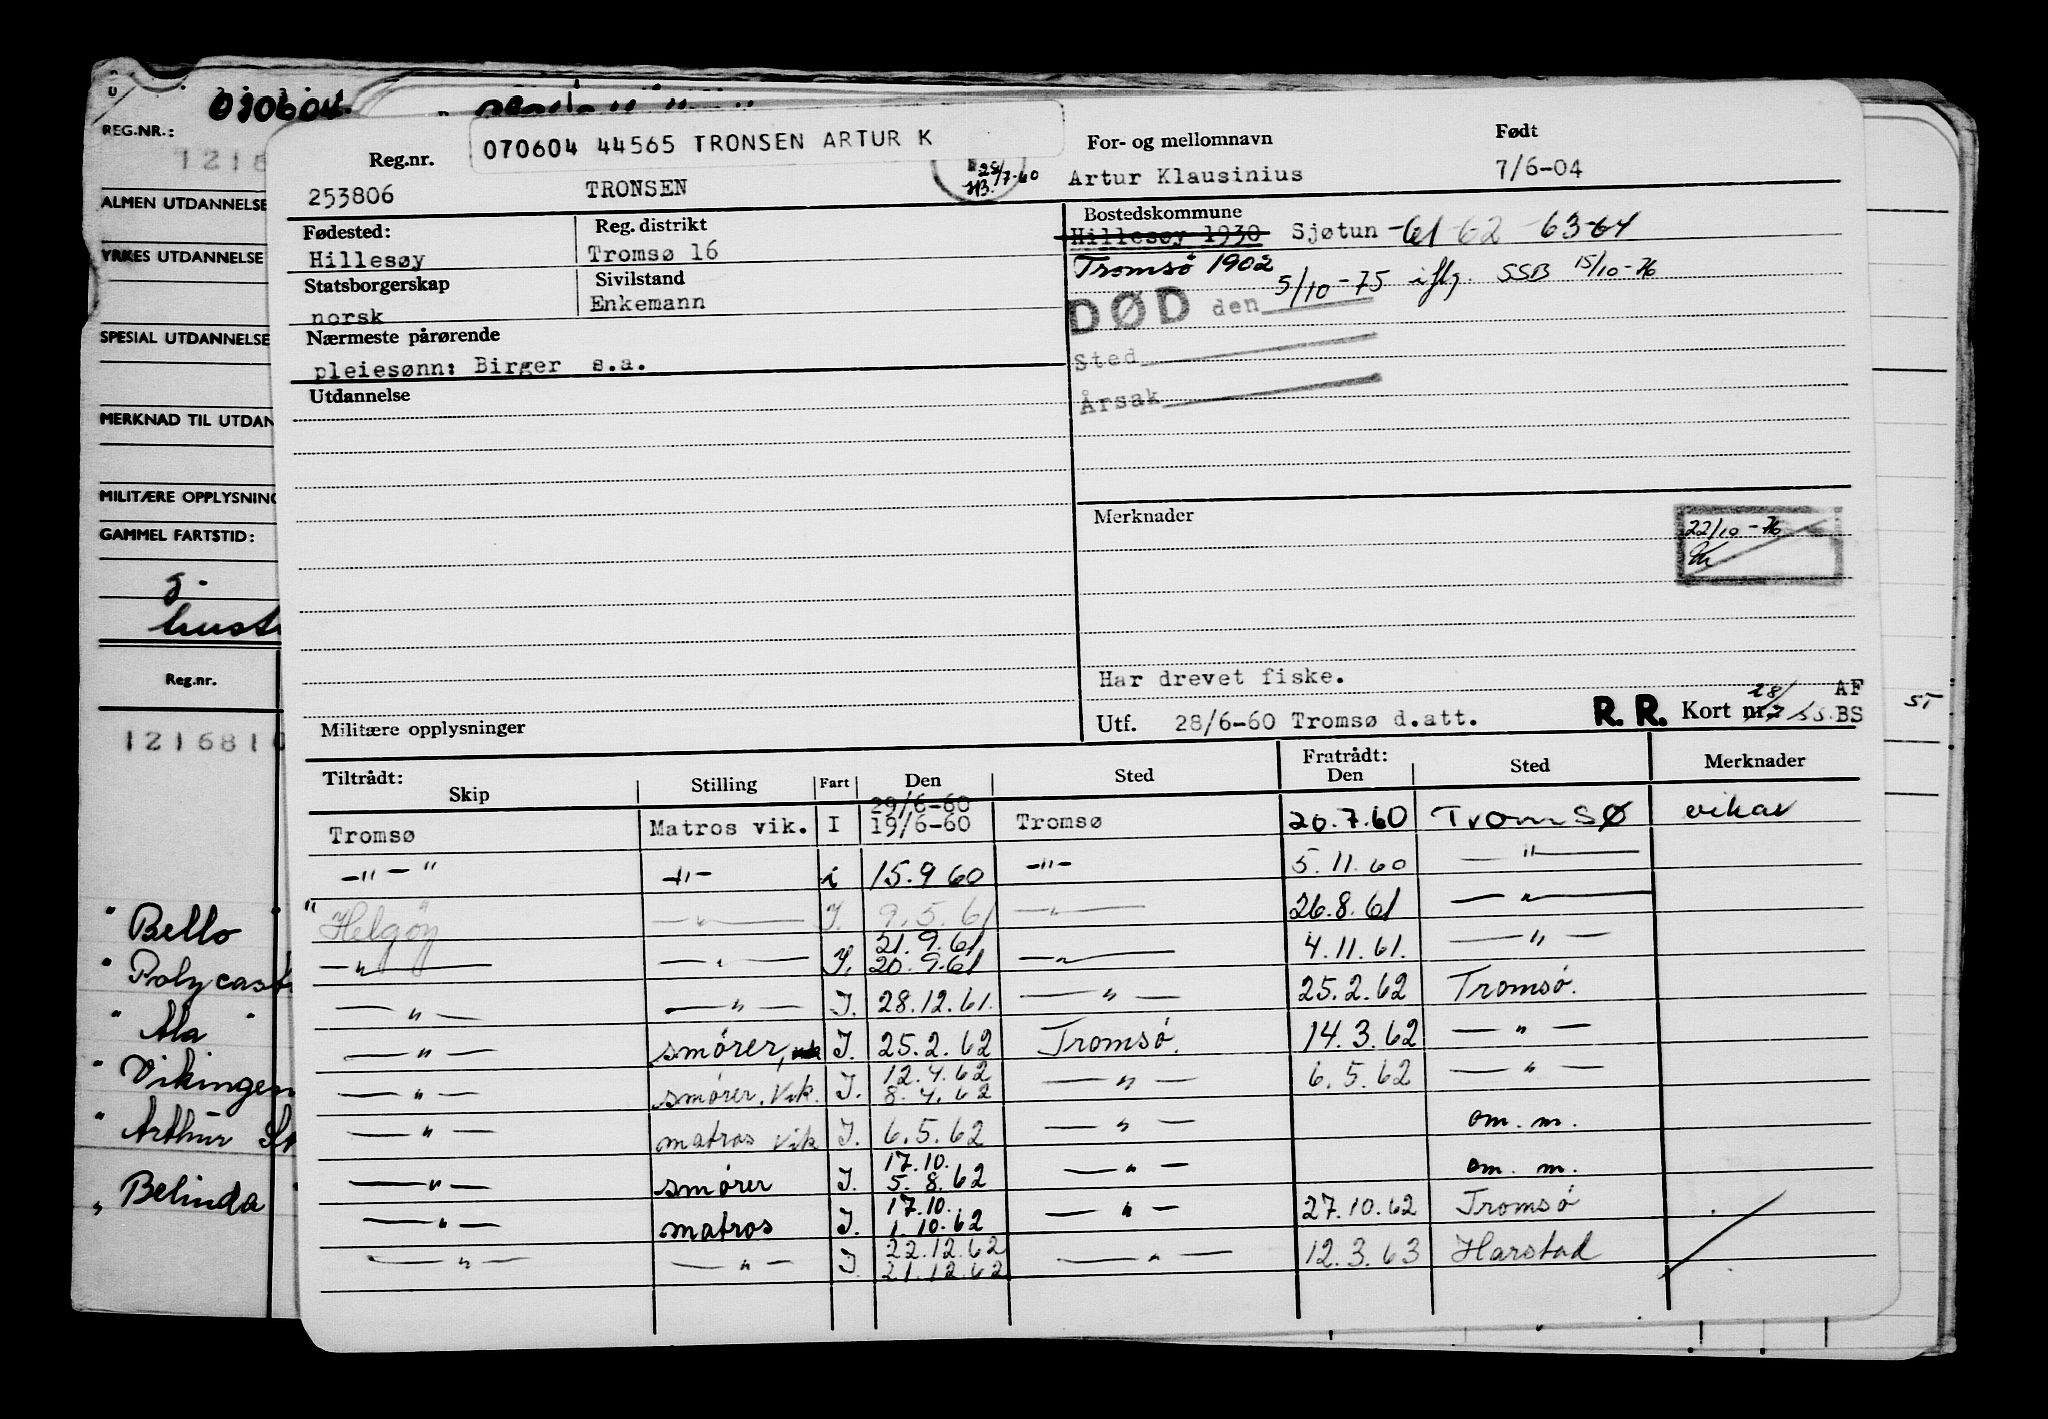 070604
REG.NR.:
1216
ALMEN UTDANNELSE
YRKES UTDANNELSE
SPESIAL UTDANNELSE
MERKNAD TIL UTDAN
MILITÆRE OPPLYSNING
GAMMEL FARTSTID:
Reg.nr.
1216810
" Bello "
" Polycast
" Ala "
" Vikingen
" Arthur St
" Belinda
070604 44565 TRONSEN ARTUR K
Reg.nr. For- og mellomnavn Født
253806 TRONSEN 25/7-60 Artur Klausinius 7/6-04
Fødested: Reg. distrikt Bostedskommune
Hillesøy Tromsø 16 Hillesøy 1930 Sjøtun -61-62-63-64
Tromsø 1902
Statsborgerskap Sivilstand
norsk Enkemann
DØD den 5/10-75 iflg. SSB 15/10-76
Nærmeste pårørende
pleiesønn: Birger s.a.
Sted
Utdannelse
Årsak
Merknader
22/10-76
Har drevet fiske.
Militære opplysninger
Utf. 28/6-60 Tromsø d.att. R. R. Kort nr. AF
BS
Tiltrådt: Skip Stilling Fart Den Sted Fratrådt: Den Sted Merknader
29/6-60
Tromsø Matros vik. I 19/6-60 Tromsø 20.7.60 Tromsø vikar
-"- " -"- i 15.9 60 -"- 5.11.60 -"-
" Helgøy " -"- I. 9.5.61 -"- 26.8.61 -"-
21.9.61
-"- -"- I. 20.9.61 -"- 4.11.61. -"-
-"- -"- I. 28.12.61. -"- 25.2.62 Tromsø.
-"- smører, I. 25.2.62 Tromsø. 14.3.62 -"-
12.4.62
-"- smører. vik. I. 8.4.62 -"- 6.5.62 -"-
-"- matros vik I. 6.5.62 -"- om. m.
17.10.
-"- smører I. 5.8.62 -"- om. m.
17.10.
-"- matros I. 1.10.62 -"- 27.10.62 Tromsø
22.12.62
-"- -"- I. 21.12.62 -"- 12.3.63 Harstad